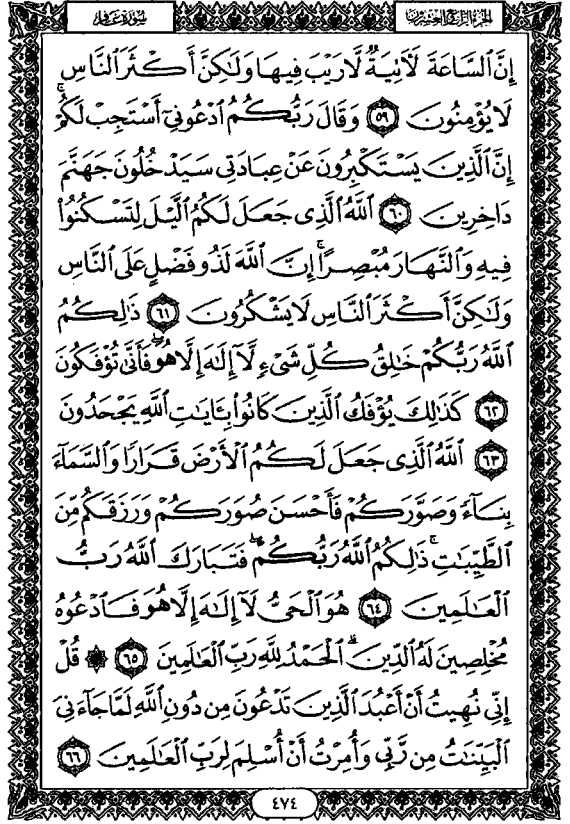 الجزء الرابع والعشرون
سورة غافر
إِنَّ ٱلسَّاعَةَ لَـَٔاتِيَةٌ لَّا رَيْبَ فِيهَا وَلَـٰكِنَّ أَكْثَرَ ٱلنَّاسِ
لَا يُؤْمِنُونَ ٥٩ وَقَالَ رَبُّكُمُ ٱدْعُونِىٓ أَسْتَجِبْ لَكُمْ ۚ
إِنَّ ٱلَّذِينَ يَسْتَكْبِرُونَ عَنْ عِبَادَتِى سَيَدْخُلُونَ جَهَنَّمَ
دَاخِرِينَ ٦٠ ٱللَّهُ ٱلَّذِى جَعَلَ لَكُمُ ٱلَّيْلَ لِتَسْكُنُوا۟
فِيهِ وَٱلنَّهَارَ مُبْصِرًا ۚ إِنَّ ٱللَّهَ لَذُو فَضْلٍ عَلَى ٱلنَّاسِ
وَلَـٰكِنَّ أَكْثَرَ ٱلنَّاسِ لَا يَشْكُرُونَ ٦١ ذَٰلِكُمُ
ٱللَّهُ رَبُّكُمْ خَـٰلِقُ كُلِّ شَىْءٍ لَّآ إِلَـٰهَ إِلَّا هُوَ ۖ فَأَنَّىٰ تُؤْفَكُونَ
٦٢ كَذَٰلِكَ يُؤْفَكُ ٱلَّذِينَ كَانُوا۟ بِـَٔايَـٰتِ ٱللَّهِ يَجْحَدُونَ
٦٣ ٱللَّهُ ٱلَّذِى جَعَلَ لَكُمُ ٱلْأَرْضَ قَرَارًا وَٱلسَّمَآءَ
بِنَآءً وَصَوَّرَكُمْ فَأَحْسَنَ صُوَرَكُمْ وَرَزَقَكُم مِّنَ
ٱلطَّيِّبَـٰتِ ۚ ذَٰلِكُمُ ٱللَّهُ رَبُّكُمْ ۖ فَتَبَارَكَ ٱللَّهُ رَبُّ
ٱلْعَـٰلَمِينَ ٦٤ هُوَ ٱلْحَىُّ لَآ إِلَـٰهَ إِلَّا هُوَ فَٱدْعُوهُ
مُخْلِصِينَ لَهُ ٱلدِّينَ ۗ ٱلْحَمْدُ لِلَّهِ رَبِّ ٱلْعَـٰلَمِينَ ٦٥ ۞ قُلْ
إِنِّى نُهِيتُ أَنْ أَعْبُدَ ٱلَّذِينَ تَدْعُونَ مِن دُونِ ٱللَّهِ لَمَّا جَآءَنِىَ
ٱلْبَيِّنَـٰتُ مِن رَّبِّى وَأُمِرْتُ أَنْ أُسْلِمَ لِرَبِّ ٱلْعَـٰلَمِينَ ٦٦
٤٧٤